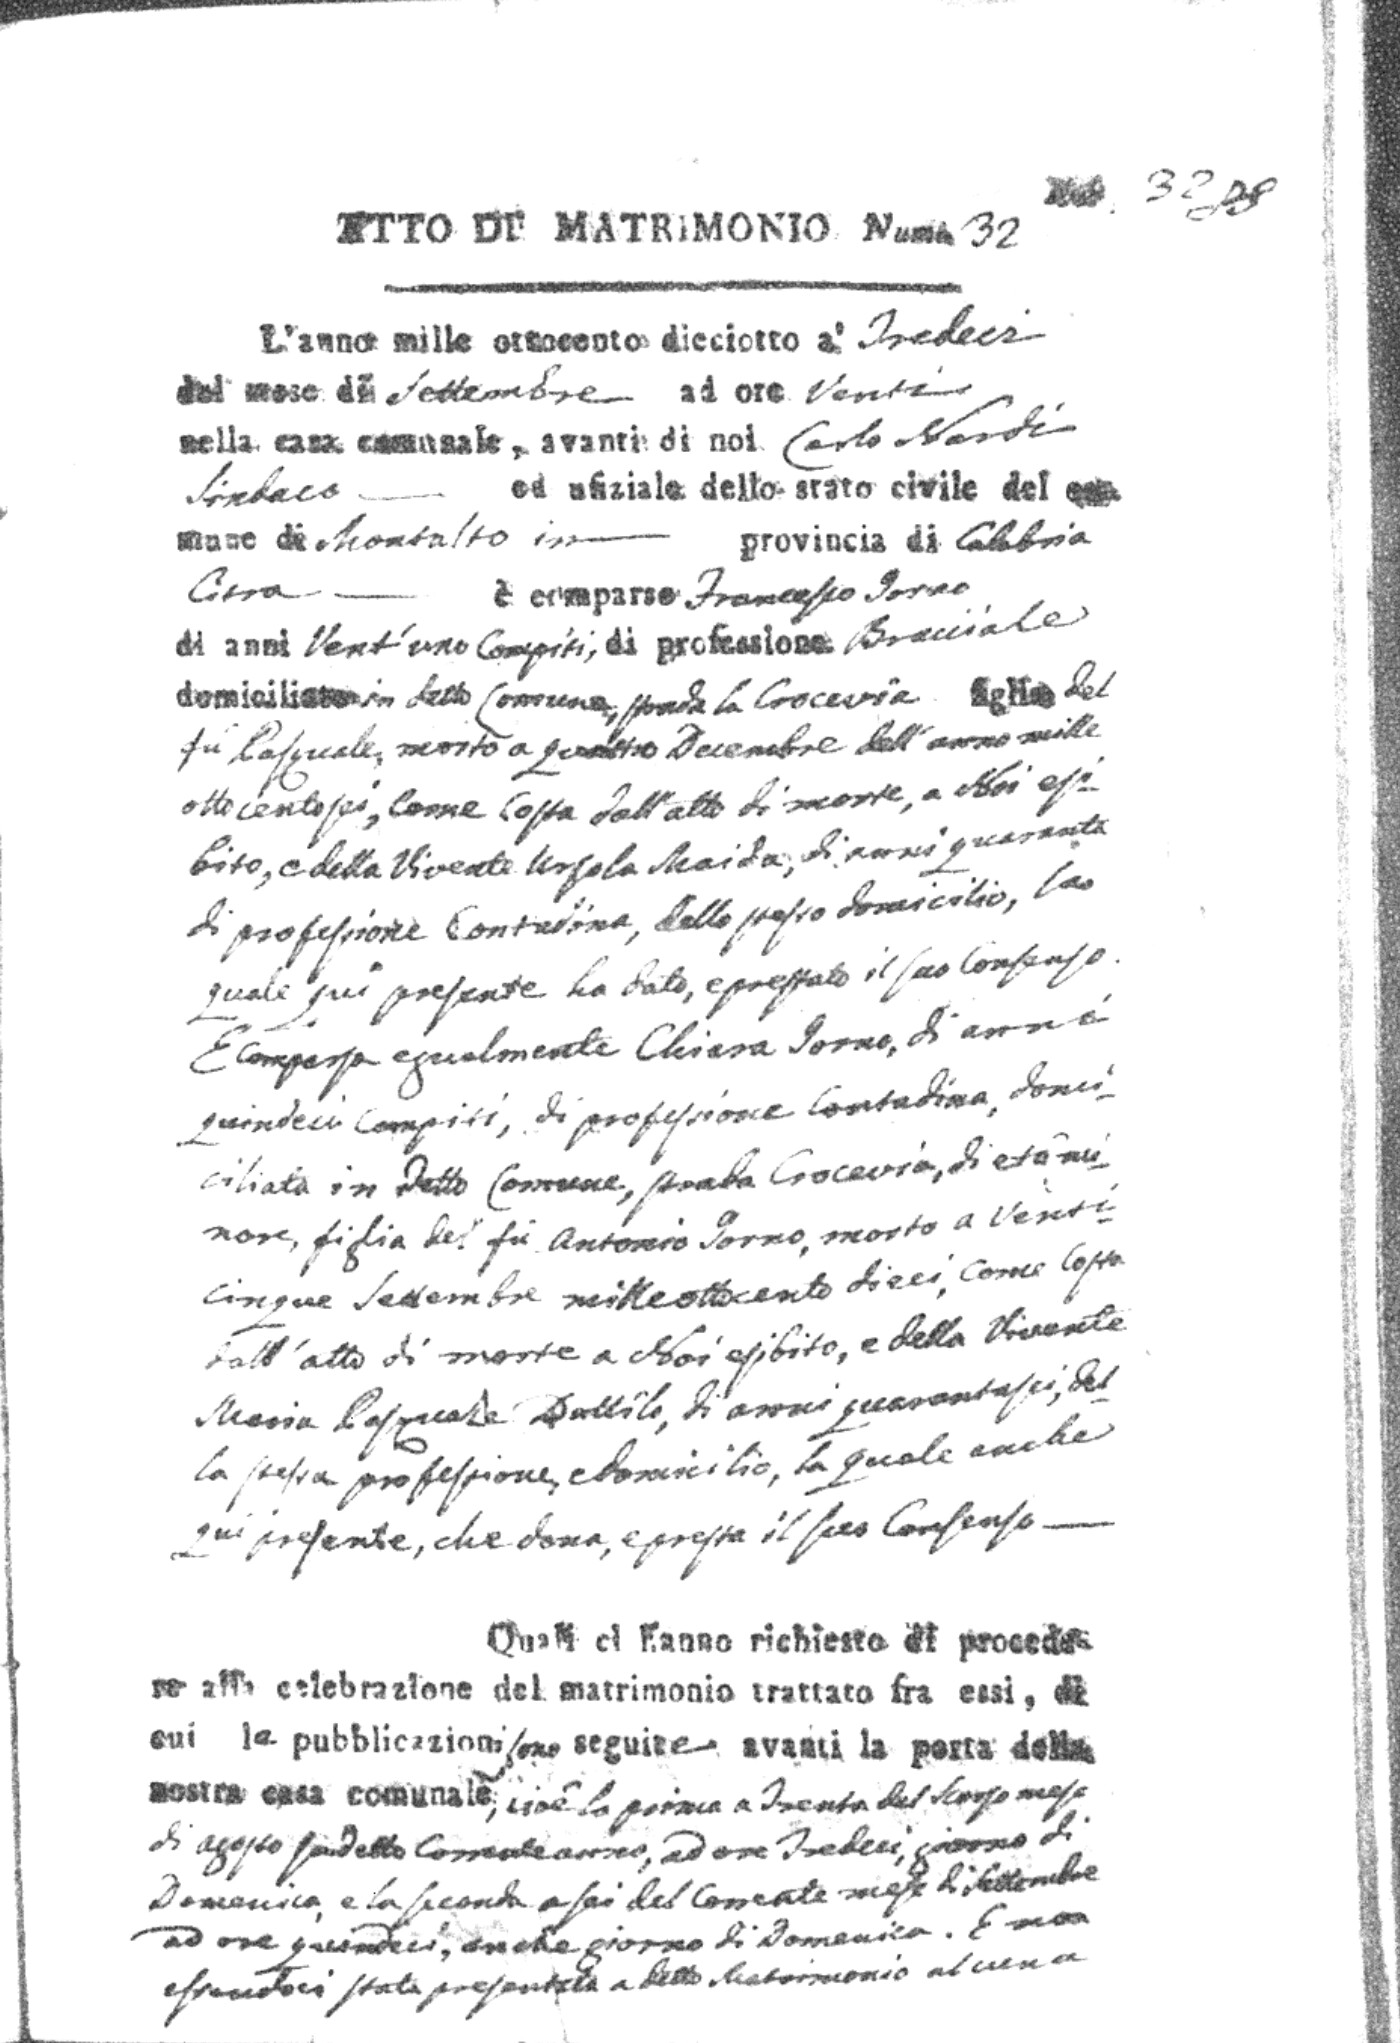 32
ATTO DI MATRIMONIO Num. 32
L'anno mille ottocento dicciotto a' Tredeci
del mese di Settembre ad ore Venti
nella casa comunale, avanti di noi Carlo Nardi
Sindaco ed ufiziale dello stato civile del co-
mune di Montalto in provincia di Calabria
Citra è comparso Francesco Iorno
di anni Vent'uno Compiti, di professione Bracciale
domiciliato in detto Comune, strada la Crocevia figlio del
fù Pasquale, morto a quattro Decembre dell'anno mille
ottocentosei, come Costa dall'atto di morte, a Noi esi-
bito, e della Vivente Ursola Maida, di anni quaranta
di professione Contadina, dello stesso domicilio, la
quale qui presente ha dato, e prestato il suo Consenso.
E comparsa egualmente Chiara Iorno, di anni
quindeci Compiti, di professione Contadina, domi-
ciliata in detto Comune, strada Crocevia, di età mi-
nore, figlia del fù Antonio Iorno, morto a Venti-
cinque Settembre mille ottocento dieci, come Costa
dall'atto di morte a Noi esibito, e della Vivente
Maria Pasquale Dattilo, di anni quarantasei, del-
la stessa professione, e domicilio, la quale anche
qui presente, che dona, e presta il suo Consenso
Quali ci hanno richiesto di procede-
re alla celebrazione del matrimonio trattato fra essi, di
cui le pubblicazioni sono seguite avanti la porta della
nostra casa comunale, cioè la prima a Trenta del Scorso mese
di agosto sudetto Corrente anno, ad ore Tredeci, giorno di
Domenica, e la seconda a sei del Corrente mese di Settembre
ad ore quindeci, anche giorno di Domenica. E non
essendoci stata presentata a detto Matrimonio alcuna